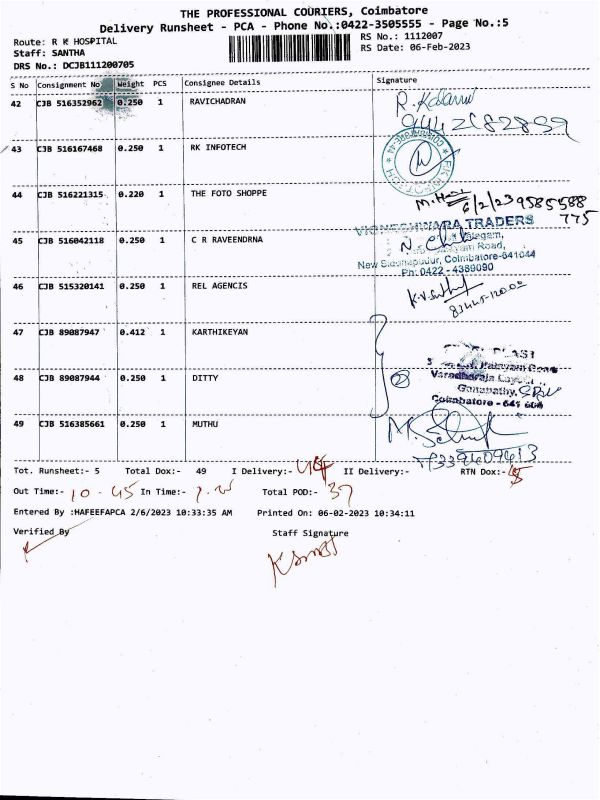 THE PROFESSIONAL COURIERS, Coimbatore
Delivery Runsheet - PCA - Phone No.:0422-3505555 - Page No.:5
Route: R K HOSPITAL
Staff: SANTHA
DRS No.: DCJB111200705
RS No.: 1112007
RS Date: 06-Feb-2023
S No Consignment No Weight PCS Consignee Details Signature
42 CJB 516352962 0.250 1 RAVICHADRAN
43 CJB 516167468 0.250 1 RK INFOTECH
44 CJB 516221315 0.220 1 THE FOTO SHOPPE
6/2/23 9585588
775
45 CJB 516042118 0.250 1 C R RAVEENDRNA
VIGNESHWARA TRADERS
Road,
Coimbatore-641044
Ph: 0422 - 4389090
46 CJB 515320141 0.250 1 REL AGENCIS
47 CJB 89087947 0.412 1 KARTHIKEYAN
48 CJB 89087944 0.250 1 DITTY
2
Varadharaja
Ganapathy,
Coimbatore - 641 006
49 CJB 516385661 0.250 1 MUTHU
Tot. Runsheet:- 5 Total Dox:- 49 I Delivery:- II Delivery:- RTN Dox:-
Out Time:- 10.45 In Time:- Total POD:- 37
Entered By :HAFEEFAPCA 2/6/2023 10:33:35 AM Printed On: 06-02-2023 10:34:11
Verified By Staff Signature